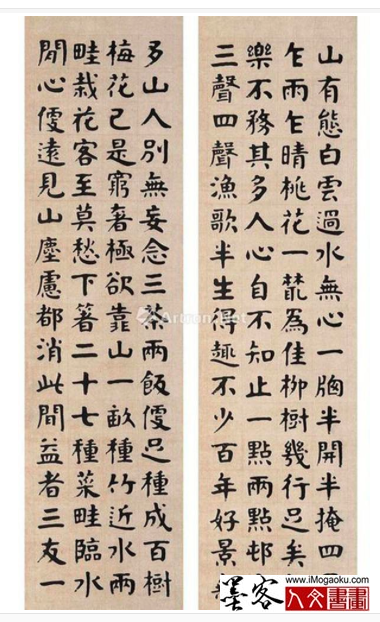 山有態白雲過水無心一牕半開半掩四
乍雨乍晴桃花一藂為佳柳樹幾行足矣
樂不務其多人心自不知止一點兩點邨
三聲四聲漁歌半生得趣不少百年好景
多山人別無妄念三茶兩飯便足種成百樹
梅花已是窮奢極欲靠山一畝種竹近水兩
畦栽花客至莫愁下箸二十七種菜畦臨水
閒心便遠見山塵慮都消此間益者三友一
墨客
www.iMogaoku.com
人文書畫